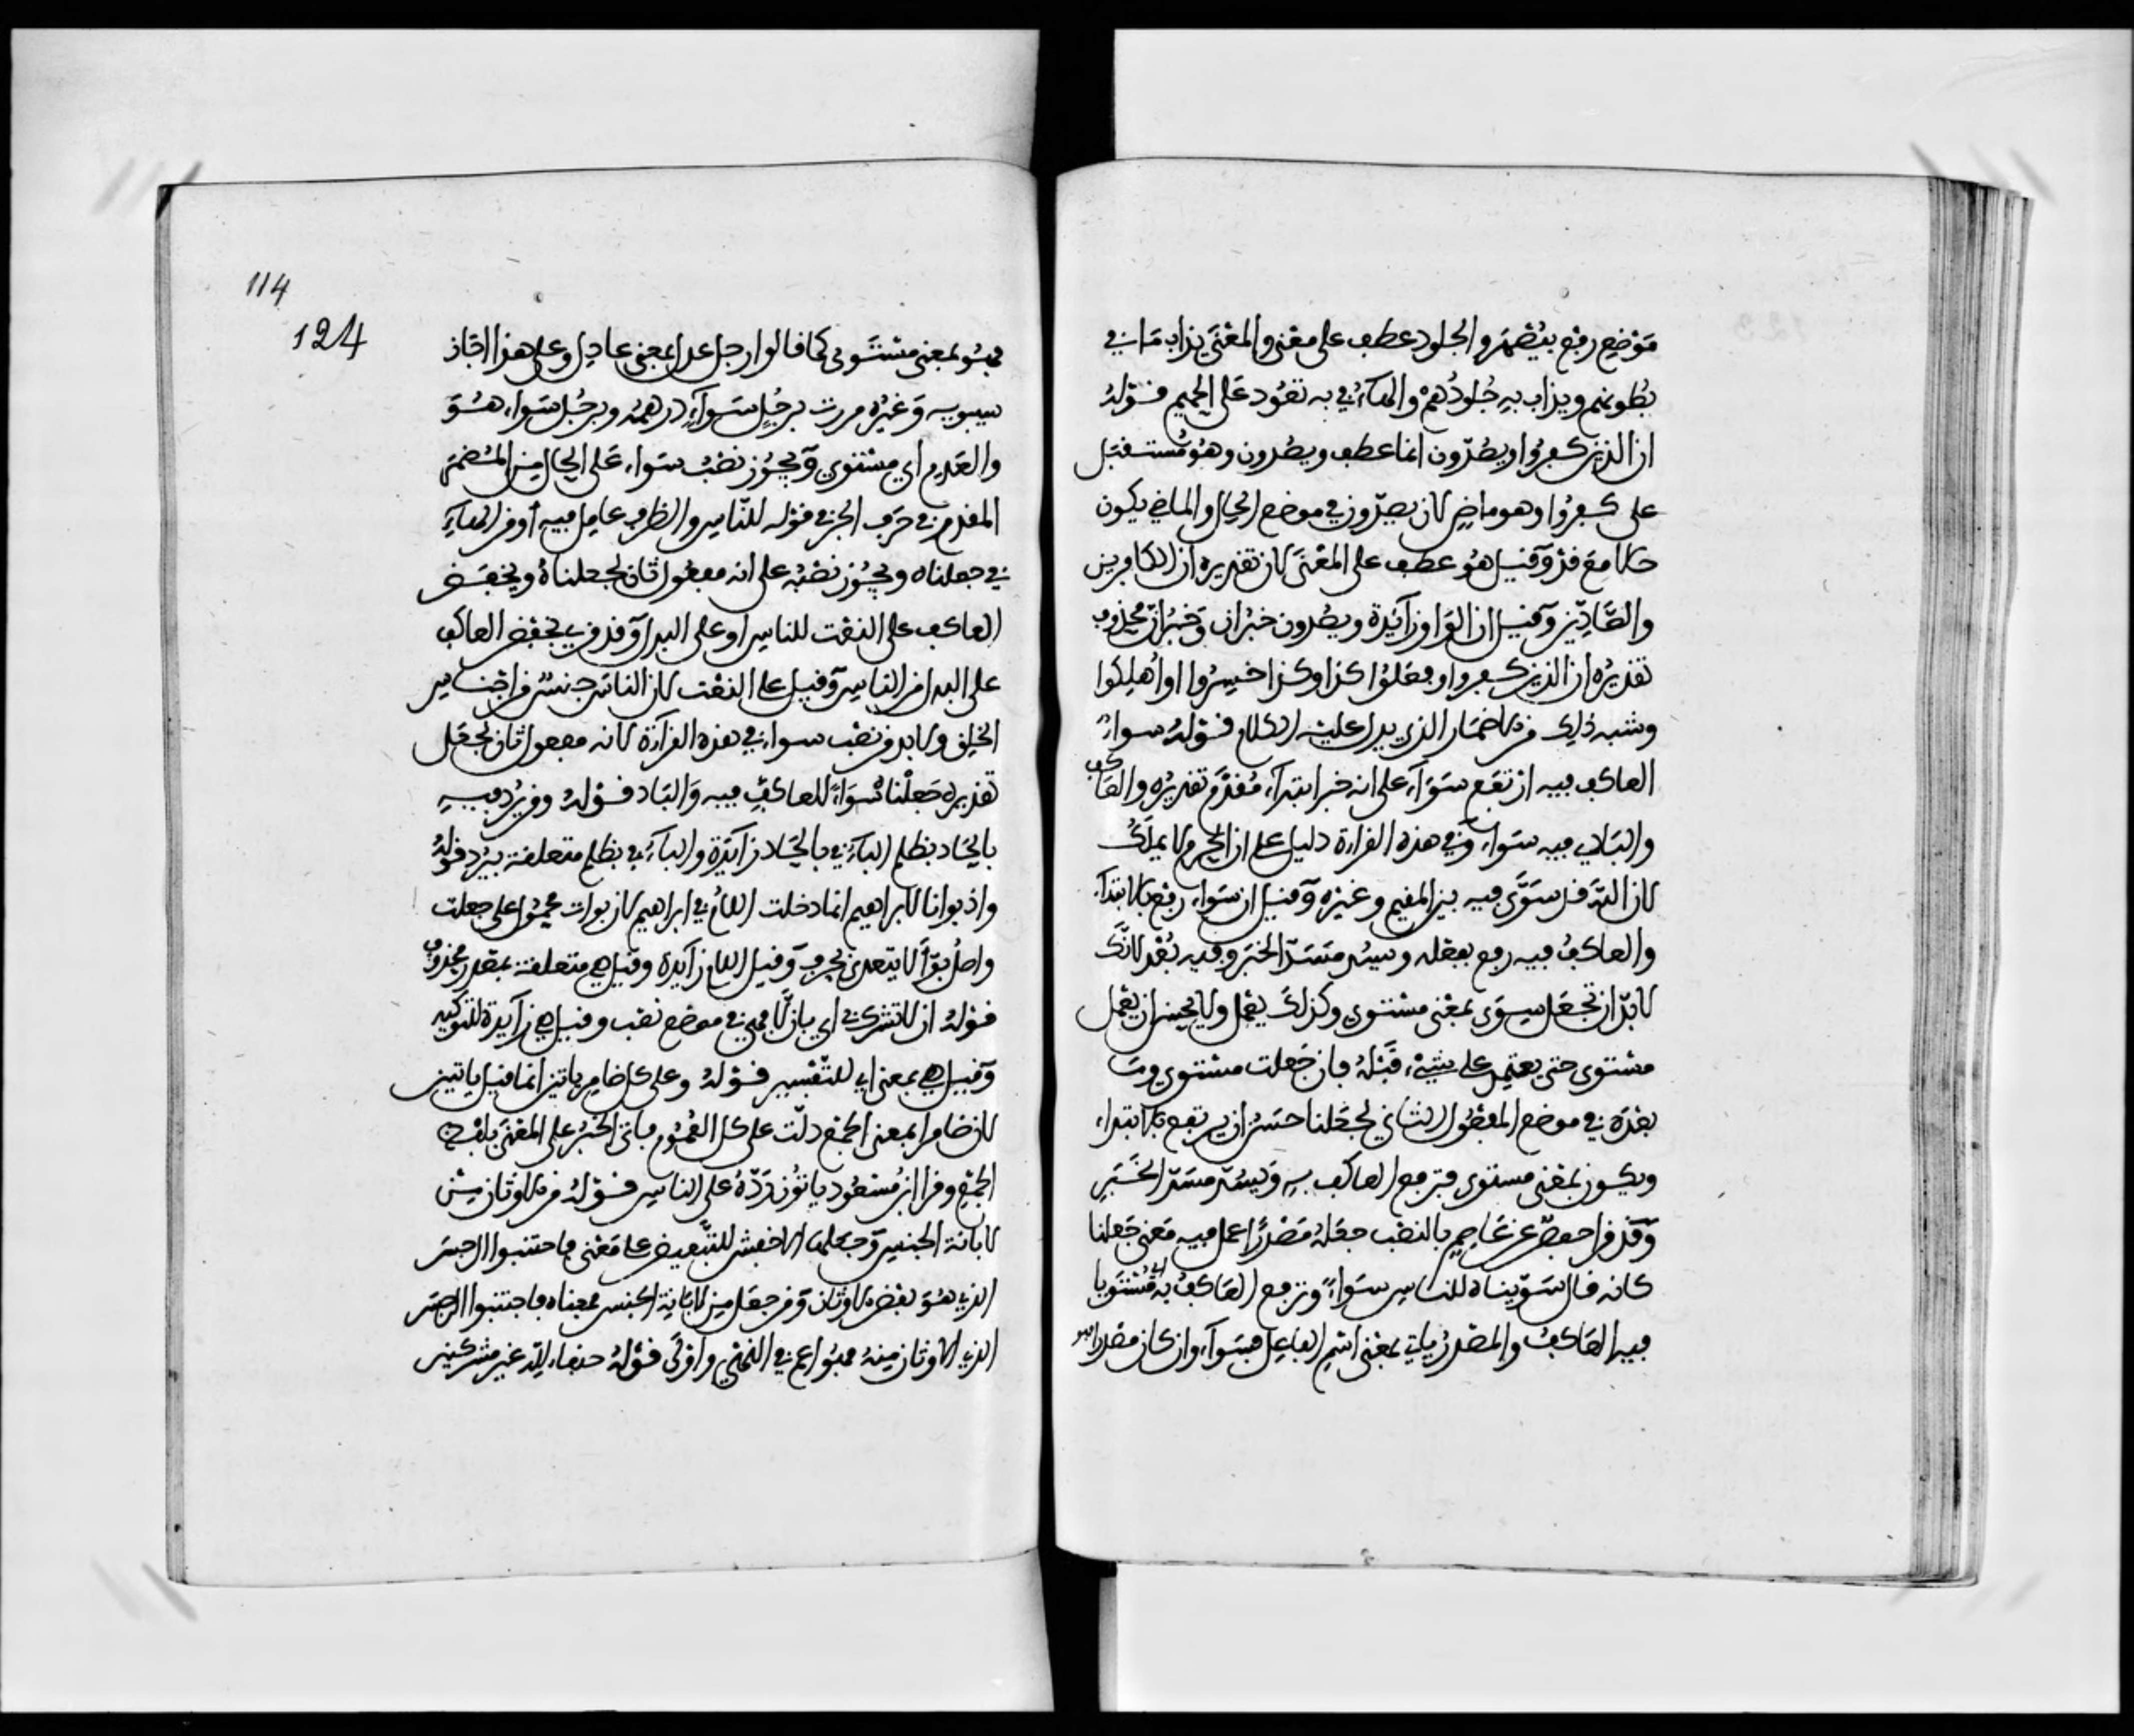 موضع رفع بيصهر والجلود عطف على معنى والمعنى يذاب ما في
بطونهم ويذاب به جلودهم والهاء في به تعود على الحميم قوله
ان الذين كفروا ويصدون انما عطف ويصدون وهو مستقبل
على كفروا وهو ماض لان يصدون في موضع الحال والماضي يكون
حالا مع قد وقيل هو عطف على المعنى لان تقديره ان الكافرين
والصادين وقيل ان الواو زائدة ويصدون خبر ان وخبر ان محذوف
تقديره ان الذين كفروا وفعلوا كذا وكذا خسروا او اهلكوا
وشبه ذلك من الاضمار الذي يدل عليه الكلام قوله سواء
العاكف فيه ارتفع سواء على انه خبر ابتداء مقدم تقديره والعاكف
والبادي فيه سواء وفي هذه القراءة دليل على ان الحرم لا يملك
لان الله قد سوى فيه بين المقيم وغيره وقيل ان سواء رفع بالابتداء
والعاكف فيه رفع بفعله ويسد مسد الخبر وفيه بعد لانك
لابد ان تجعل سوى بمعنى مستوي وكذلك يعمل ولا يحسن ان يعمل
مستوى حتى يعتمد على شيء قبله فان جعلت مستوي وما
بعده في موضع المفعول الثاني لجعلنا حسن ان يرتفع بالابتداء
ويكون بمعنى مستوى فترفع العاكف به ويسد مسد الخبر
وقد قرا حفص عن عاصم بالنصب جعله مصدرا عمل فيه معنى جعلنا
كانه قال سويناه للناس سواء وترفع العاكف به اي مستويا
فيه العاكف والمصدر ياتي بمعنى اسم الفاعل فسواء وان كان مصدرا فهو
114
124
فهو بمعنى مستوى كما قالوا رجل عدل بمعنى عادل وعلى هذا اجاز
سيبويه وغيره مررت برجل سواء درهمه وبرجل سواء هو
والعدم اي مستوي ويجوز نصب سواء على الحال من المضمر
المقدر في حرف الجر في قوله للناس والظرف عامل فيه او من الهاء
في جعلناه ويجوز نصبه على انه مفعول ثان لجعلناه ويخفض
العاكف على النعت للناس او على البدل وقد قرئ بخفض العاكف
على البدل من الناس وقيل على النعت لان الناس جنس من اجناس
الخلق ولا بد من نصب سواء في هذه القراءة لانه مفعول ثان لجعل
تقديره جعلناه سواء للعاكف فيه والباد قوله ومن يرد فيه
بالحاد بظلم الباء في بالحاد زائدة والباء في بظلم متعلقة بيرد قوله
واذ بوانا لابراهيم انما دخلت اللام في ابراهيم لان بوات محمول على جعلت
واصل بوا لا يتعدى بحرف وقيل اللام زائدة وقيل هي متعلقة بمصدر محذوف
قوله ان لا تشرك بي اي بان لا فهي في موضع نصب وقيل هي زائدة للتوكيد
وقيل هي بمعنى اي للتفسير قوله وعلى كل ضامر ياتين انما قيل ياتين
لان ضامرا بمعنى الجمع دلت على كل العموم فاتى الخبر على المعنى بلفظ
الجمع وقرا ابن مسعود ياتون رده على الناس قوله من الاوثان من
لابانة الجنس وجعلها الاخفش للتبعيض على معنى فاجتنبوا الرجس
الذي هو بعض الاوثان ومن جعل من لابانة الجنس فمعناه فاجتنبوا الرجس
الذي الاوثان منه فهو اعم في النهي واولى قوله حنفاء لله غير مشركين